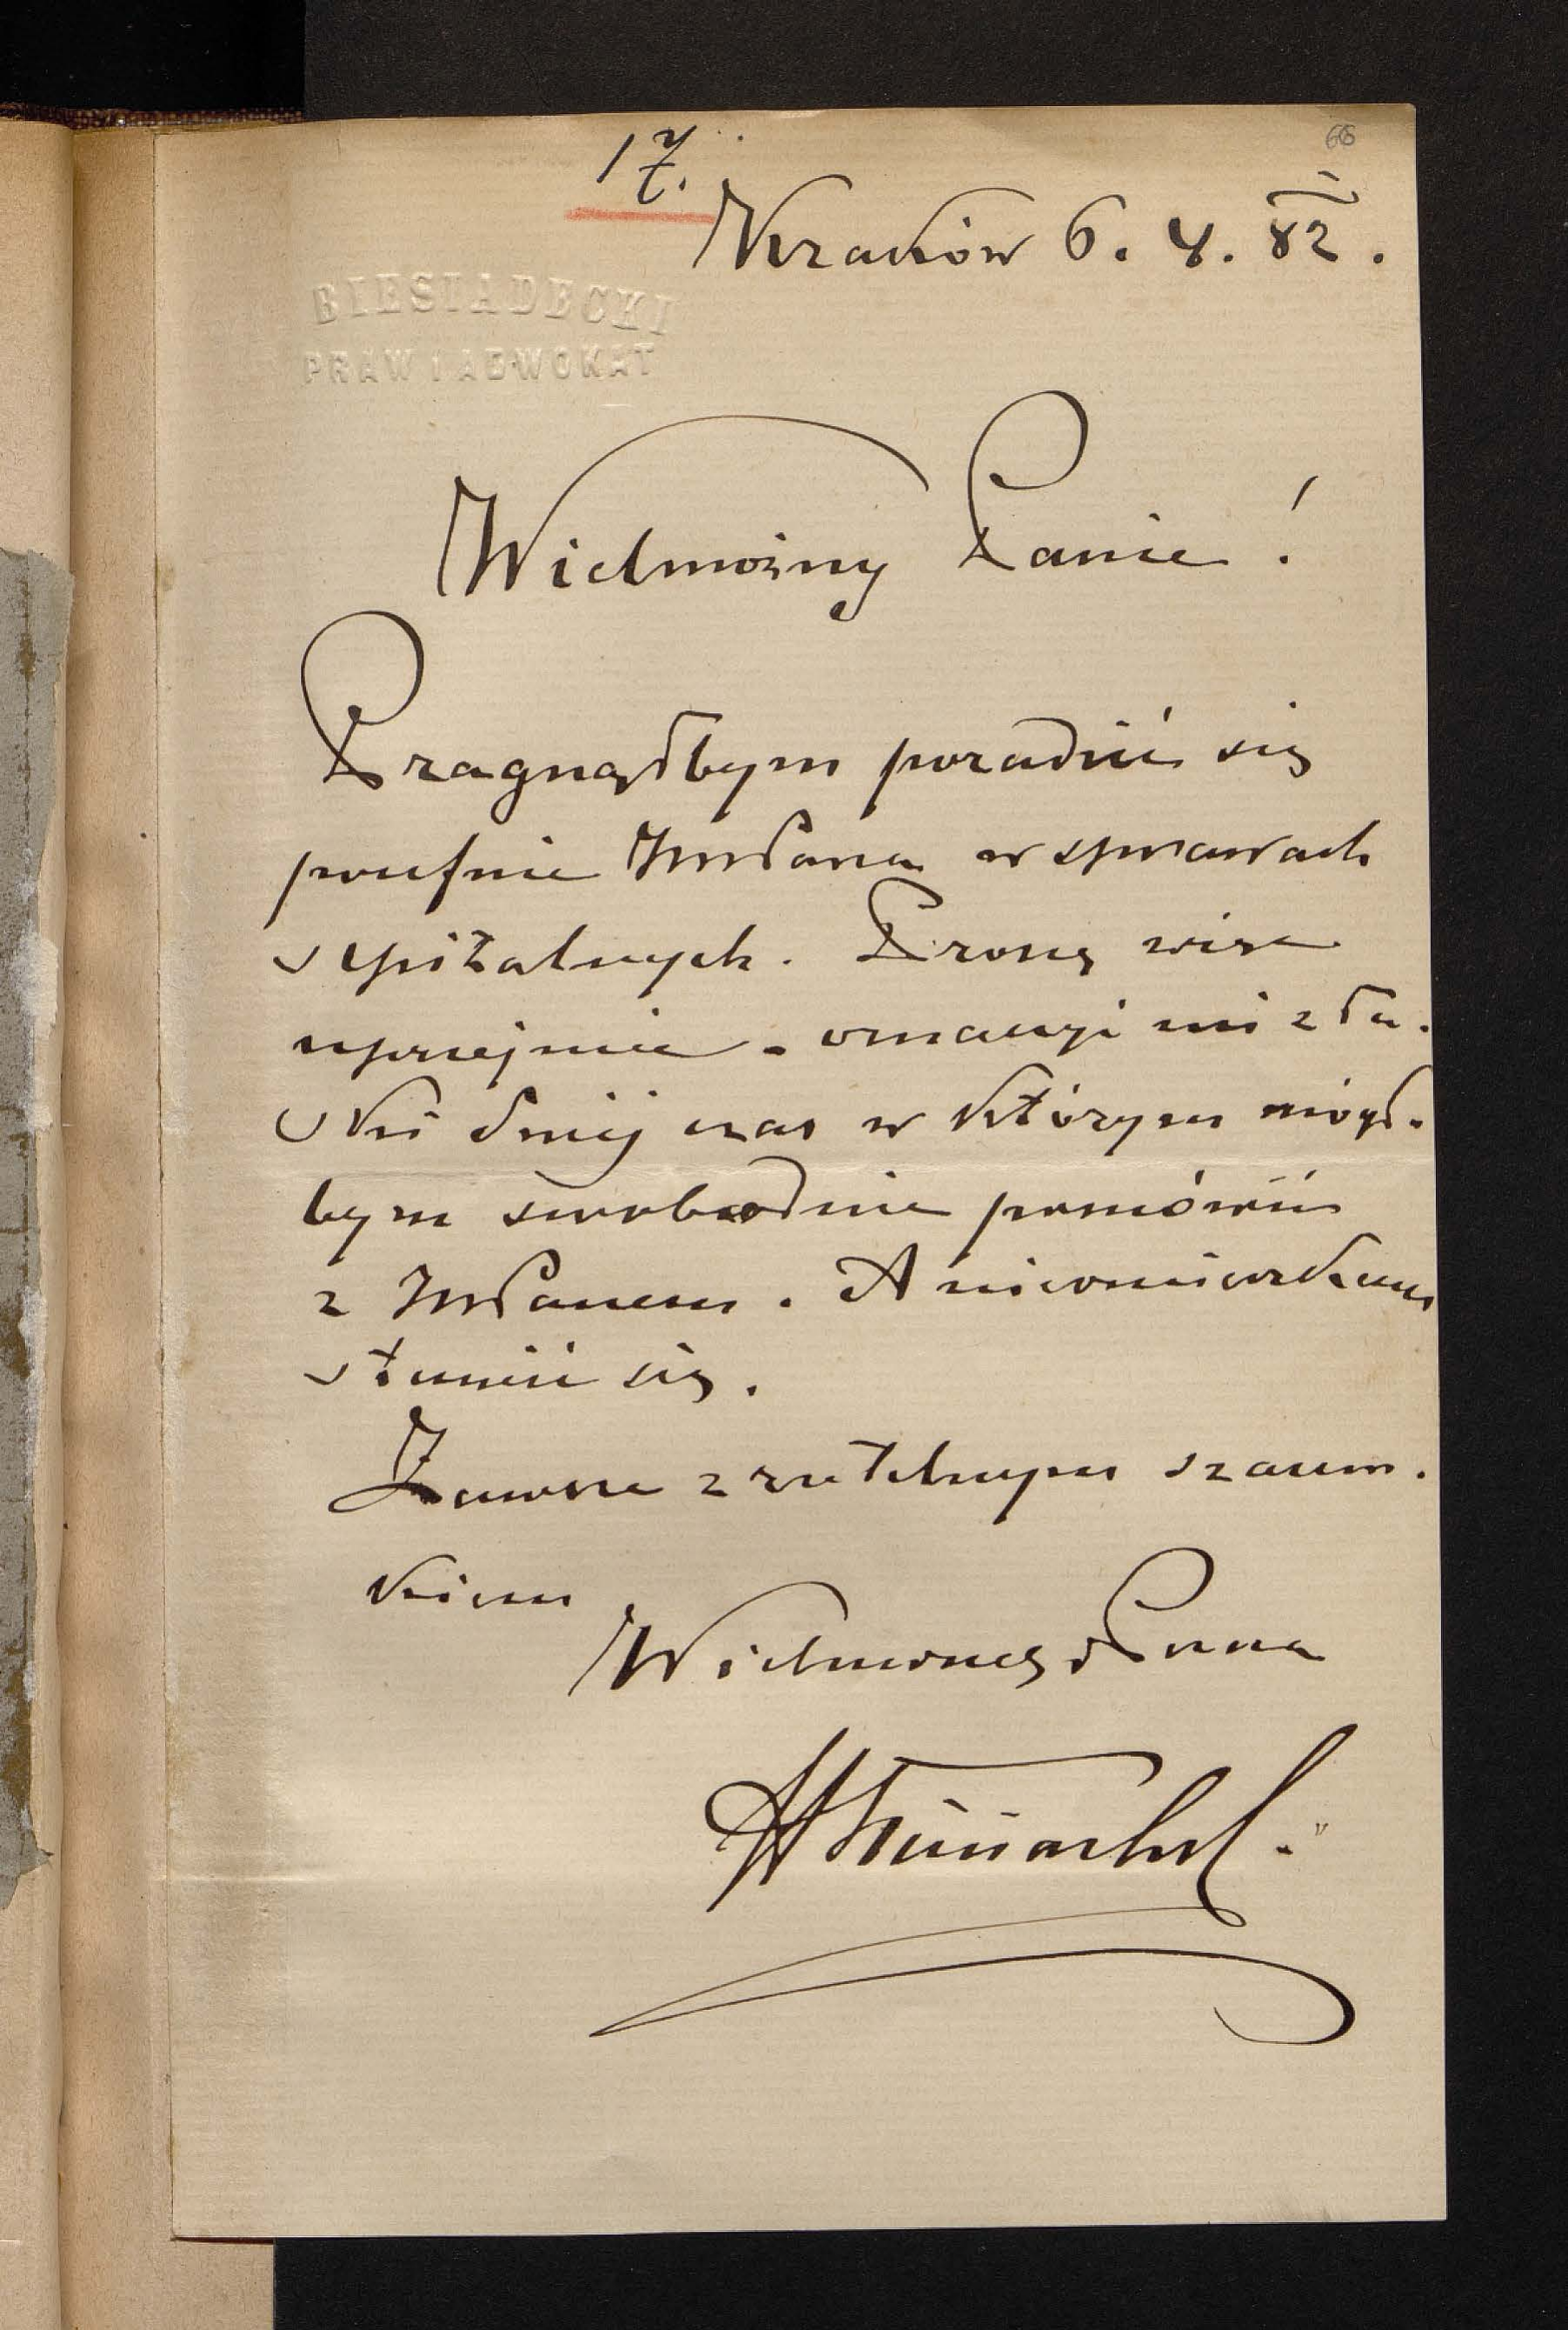 17.
68
Kraków 6. 4. 82.
BIESIADECKI
PRAW I ADWOKAT
Wielmożny Panie!
Pragnąłbym poradzić się
poufnie WPana w sprawach
szpitalnych. Proszę więc
uprzejmie oznaczyć mi z ła-
ski swéj czas w którym mógł-
bym swobodnie pomówić
z WPanem. A nieomieszkam
stawić się.
Zawsze z rzetelnym szacun-
kiem
Wielmożnego Pana